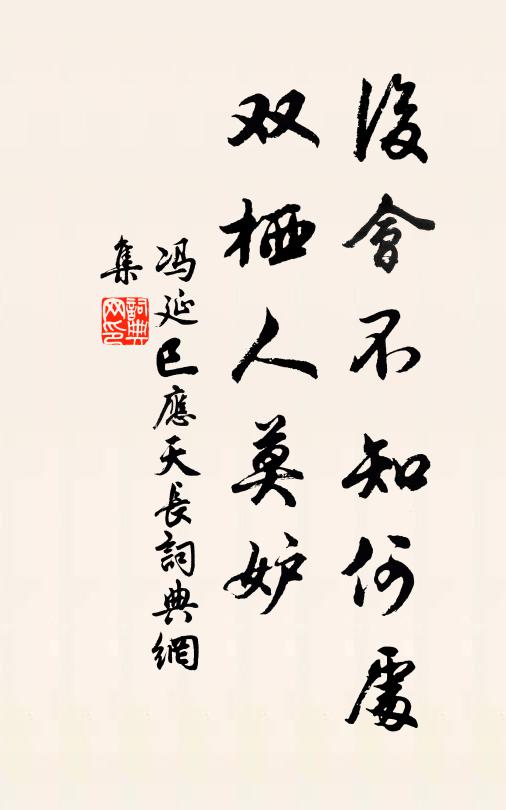 後會不知何處
双栖人莫妒
冯延巳應天長詞典網
集
詞典
网印